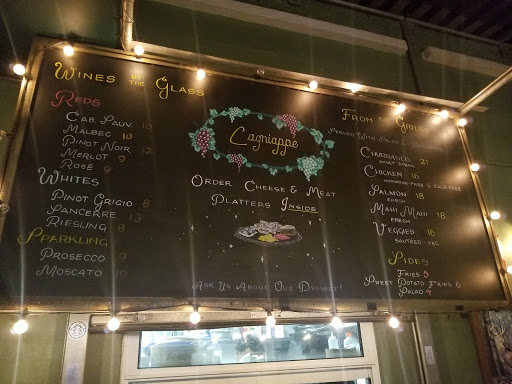 Wines by the Glass
Reds
Cab. Sauv. 10
Malbec 10
Pinot Noir 12
Merlot 9
Rosé 9
Whites
Pinot Grigio 8
Sancerre 13
Riesling 8
Sparkling
Prosecco 9
Moscato 10
Lagniappe
Order Cheese & Meat
Platters Inside
Ask Us About Our Dessert!
From the Grill
Served With Salad &
Churrasco 21
Skirt Steak
Chicken 16
Hormone-Free & Cage Free
Salmon 18
Fresh
Mahi Mahi 18
Fresh
Veggies 16
Sautéed - Vac
Sides
Fries 5
Sweet Potato Fries 6
Salad 4